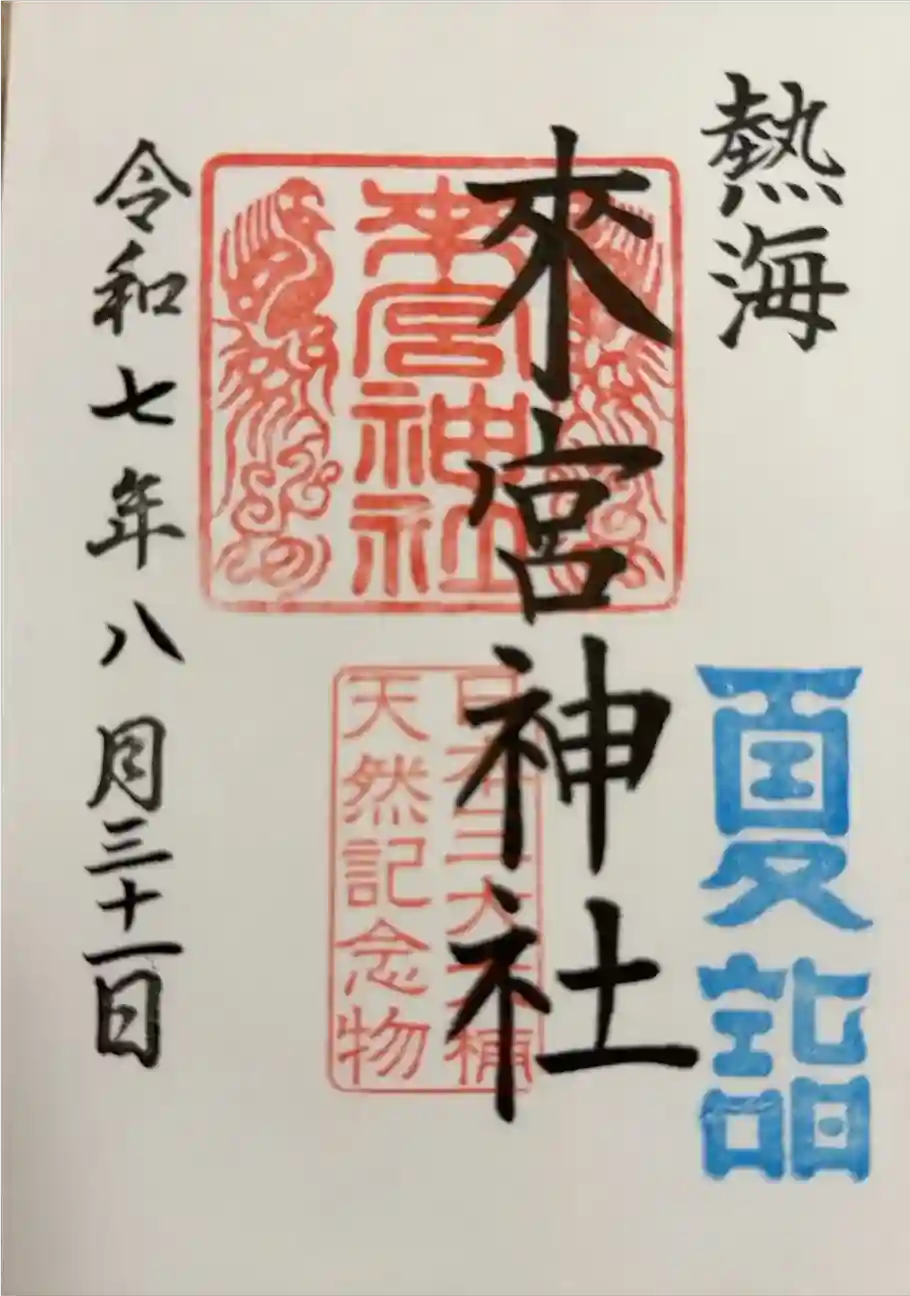 熱海
夏詣
來宮神社
来宮神社
日本三大大楠
天然記念物
令和七年八月三十一日